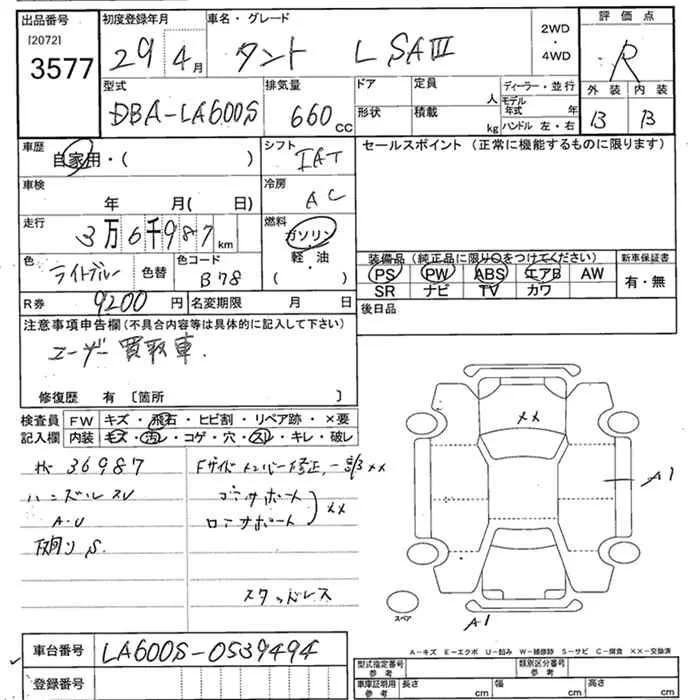 出品番号
[2072]
3577
初度登録年月
29年4月
車名・グレード
タント L SAⅢ
2WD
・
4WD
評価点
R
外装 内装
B B
型式
DBA-LA600S
排気量
660 cc
ドア
形状
定員 人
積載 kg
ディーラー・並行
モデル年式 年
ハンドル 左・右
車歴
自家用・( )
シフト
IAT
車検
年 月( 日)
冷房
AC
走行
3万6千987 km
燃料
ガソリン
・
軽油
・
( )
色
ライトブルー
色替
色コード
B78
R券 9200円
名変期限 月 日
セールスポイント (正常に機能するものに限ります)
装備品 (純正品に限り○をつけてください)
PS PW ABS エアB AW
SR ナビ TV カワ
新車保証書
有・無
後日品
注意事項申告欄(不具合内容等は具体的に記入して下さい)
ユーザー買取車.
修復歴 有 [箇所 ]
検査員記入欄
FW キズ・飛石・ヒビ割・リペア跡・×要
内装 キズ・汚レ・コゲ・穴・スレ・キレ・破レ
36987
ハンドルスレ
A・U
下廻り S.
Fサイドメンバー修正, ××
コアサポート
ロアサポート
××
スタッドレス
××
A1
A1
スペア
A-キズ E-エクボ U-凹み W-補修跡 S-サビ C-腐食 ××-交換済
車台番号 LA600S-0539494
登録番号
型式指定番号 参考
類別区分番号 参考
車庫証明用 参考
長さ cm
幅 cm
高さ cm